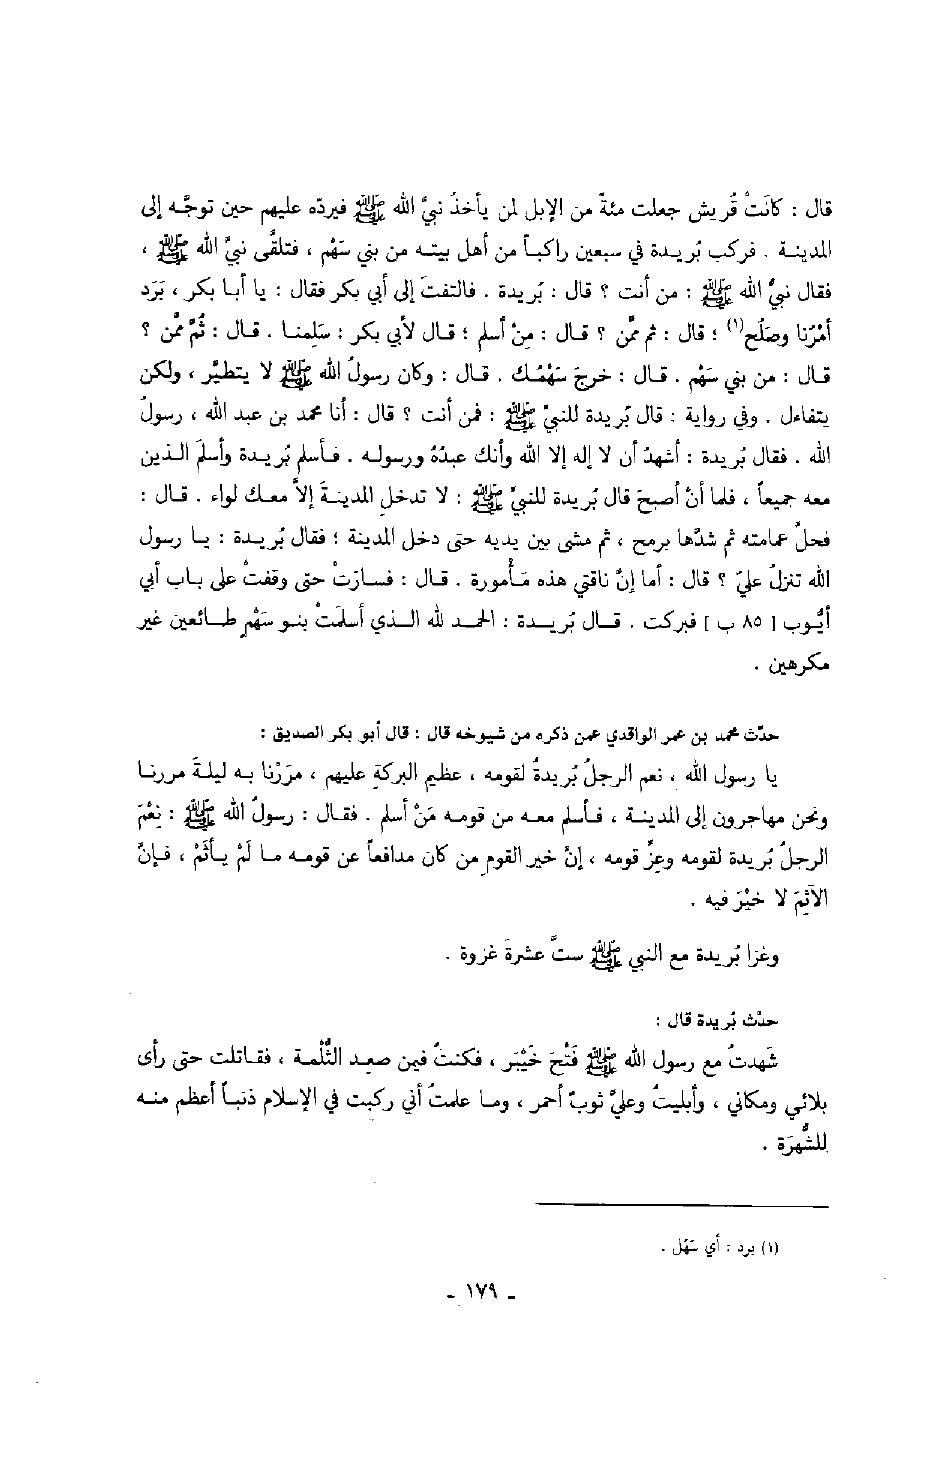 قال : كانَتْ قُريش جعلت مئةً من الإبل لمن يأخذُ نبيَّ الله ﷺ فيردّه عليهم حين توجَّه إلى
المدينة . فركب بُريدة في سبعين راكباً من أهل بيته من بني سَهْم ، فتلقَّى نبيَّ الله ﷺ ،
فقال نبيُّ الله ﷺ : من أنت ؟ قال : بُريدة . فالتفتَ إلى أبي بكر فقال : يا أبا بكر ، بَرَد
أمْرُنا وصَلُح(١) ؛ قال : ثم ممَّن ؟ قال : مِنْ أسلم ؛ قال لأبي بكر : سَلِمنا . قال : ثُمَّ ممَّن ؟
قال : من بني سَهْم . قال : خرجَ سَهْمُك . قال : وكان رسولُ الله ﷺ لا يتطيَّر ، ولكن
يتفاءل . وفي رواية : قال بُريدة للنبيِّ ﷺ : فمن أنت ؟ قال : أنا محمد بن عبد الله ، رسولُ
الله . فقال بُريدة : أشهدُ أن لا إله إلا الله وأنك عبدُهُ ورسوله . فأسلم بُريدة وأسلمَ الذين
معه جميعاً ، فلما أنْ أصبحَ قال بُريدة للنبيِّ ﷺ : لا تدخلِ المدينةَ إلاَّ معك لواء . قال :
فحلَّ عمامته ثم شدَّها برمح ، ثم مشى بين يديه حتى دخل المدينة ؛ فقال بُريدة : يا رسول
الله تنزلُ عليَّ ؟ قال : أما إنَّ ناقتي هذه مأمورة . قال : فسارَتْ حتى وقفتْ على باب أبي
أيُّوب [ ٨٥ ب ] فبركت . قال بُريدة : الحمد لله الذي أسلمَتْ بنو سَهْم طائعين غير
مكرهين .
حدّث محمد بن عمر الواقدي عمن ذكره من شيوخه قال : قال أبو بكر الصديق :
يا رسول الله ، نعم الرجلُ بُريدةُ لقومه ، عظيم البركةِ عليهم ، مرَرْنا به ليلةَ مررنا
ونحن مهاجرون إلى المدينة ، فأسلم معه من قومه مَنْ أسلم . فقال : رسولُ الله ﷺ : نِعْمَ
الرجلُ بُريدة لقومه وعزِّ قومه ، إنَّ خير القومِ من كان مدافعاً عن قومه ما لَمْ يأثَمْ ، فإنَّ
الآثِمَ لا خيْرَ فيه .
وغزا بُريدة مع النبي ﷺ ستَّ عشرةَ غزوة .
حدّث بُريدة قال :
شَهِدتُ مع رسول الله ﷺ فَتْحَ خَيْبَر ، فكنتُ فيمن صعِد الثُّلْمة ، فقاتلت حتى رأى
بلائي ومكاني ، وأبليتُ وعليَّ ثوبٌ أحمر ، وما علمتُ أني ركبت في الإسلام ذنباً أعظم منه
للشُّهرَة .
(١) برد : أي سَهُل .
- ١٧٩ -